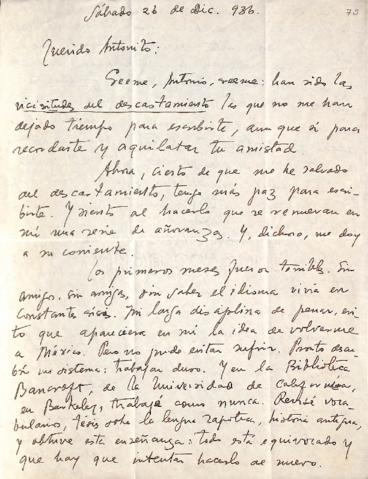 Sábado 26 de dic. 936.
75
Querido Antonito:
Creeme, Antonio, creeme: han sido las
vicisitudes del descastamiento las que no me han
dejado tiempo para escribirte, aunque sí para
recordarte y aquilatar tu amistad.
Ahora, cierto de que me he salvado
del descastamiento, tengo más paz para escri-
birte. Y siento al hacerlo que se renuevan en
mí una serie de añoranzas. Y, dichoso, me doy
a su corriente.
Los primeros meses fueron terribles. Sin
amigos, sin amigas, sin saber el idioma vivía en
constante crisis. Mi larga disciplina de penar, evi-
tó que apareciera en mí la idea de volverme
a México. Pero no pude evitar sufrir. Pronto descu-
brí un sistema: trabajar duro. Y en la Biblioteca
Bancroft, de la Universidad de California,
en Berkeley, trabajé como nunca. Revisé voca-
bularios, tesis sobre la lengua zapoteca, historia antigua,
y obtuve esta enseñanza: todo está equivocado y
que hay que intentar hacerlo de nuevo.